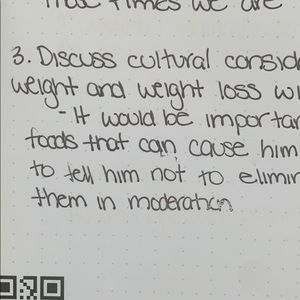 times we are
3. Discuss cultural
weight and weight loss
- It would be
foods that can cause him
to tell him not to
them in moderation